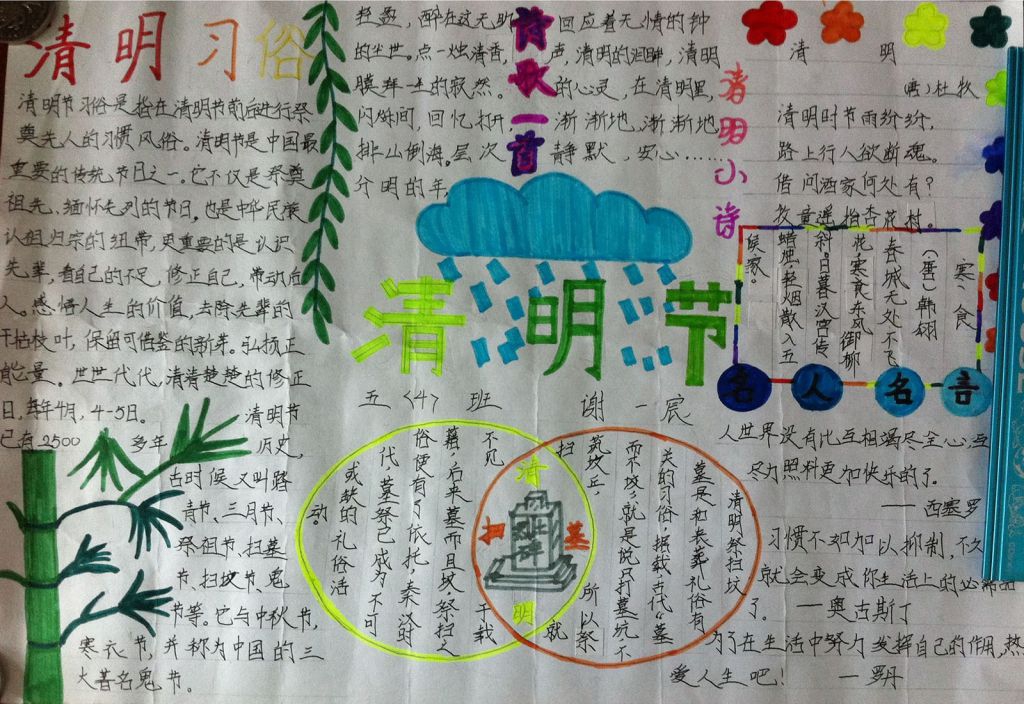 清明习俗
清明节习俗是指在清明节前后进行祭
奠先人的习惯风俗。清明节是中国最
重要的传统节日之一。它不仅是祭奠
祖先、缅怀先烈的节日,也是中华民族
认祖归宗的纽带,更重要的是认识
先辈,看自己的不足,修正自己,带动后
人。感悟人生的价值,去除先辈的
干枯枝叶,保留可借鉴的新芽。弘扬正
能量。世世代代,清清楚楚的修正
日,每年4月,4-5日。 清明节
已有2500 多年 历史,
古时候又叫踏
青节、三月节、
祭祖节、扫墓
节、扫坟节、鬼
节等。它与中秋节,
寒衣节,并称为中国的三
大著名鬼节。
诗歌一首
轻盈,醉在这无助
的尘世。点一烛清香,
膜拜一生的寂然。
闪烁间,回忆打开,一
排山倒海。层次
分明的年
回应着无情的钟
声,清明的泪眸,清明
的心灵,在清明里,
渐渐地,渐渐地
静默,安心……
清明小诗
清 明
唐:杜牧
清明时节雨纷纷,
路上行人欲断魂。
借问酒家何处有?
牧童遥指杏花村。
清明节
五〈4〉班 谢一宸
寒食
(唐)韩翃
春城无处不飞
花,寒食东风御柳
斜。日暮汉宫传
蜡烛,轻烟散入五
侯家。
名人名言
人世界没有比互相竭尽全心,互
尽力照料更加快乐的了。
——西塞罗
习惯不如加以抑制,不久
就会变成你生活上的必需品
了。 —奥古斯丁
为了在生活中努力发挥自己的作用,热
爱人生吧! —罗丹
清明
扫墓
烈士碑
清明祭扫坟
墓是和丧葬礼俗有
关的习俗,据载,古代“墓
而不坟”,就是说只打墓坑,不
筑坟丘, 所以祭
扫 就
不见 于载
籍,后来墓而且坟,祭扫之
俗便有了依托,秦汉时
代,墓祭已成为不可
或缺的礼俗活
动。